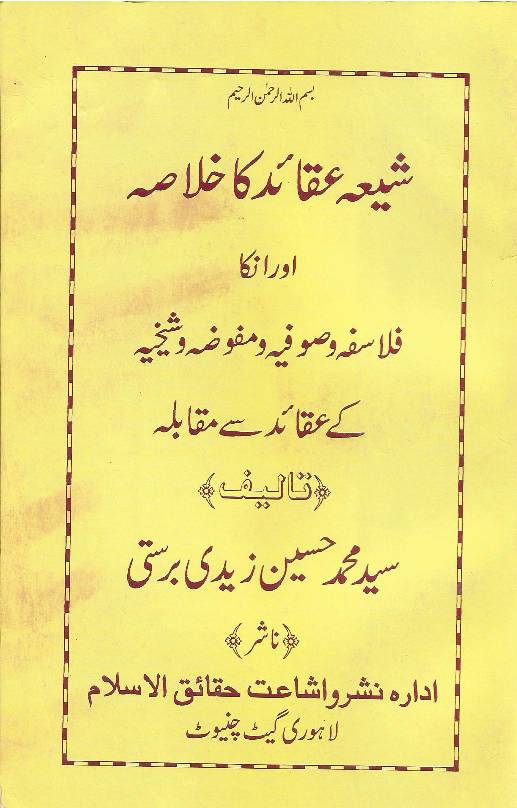 بسم اللہ الرحمٰن الرحیم
شیعہ عقائد کا خلاصہ
اور انکا
فلاسفہ و صوفیہ و مفوضہ و شیخیہ
کے عقائد سے مقابلہ
﴿تالیف﴾
سید محمد حسین زیدی برستی
﴿ناشر﴾
ادارہ نشر و اشاعت حقائق الاسلام
لاہوری گیٹ چنیوٹ